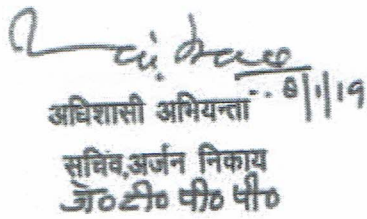 8/1/19
अधिशासी अभियन्ता
सचिव,अर्जन निकाय
ज०टी० पी० पी०